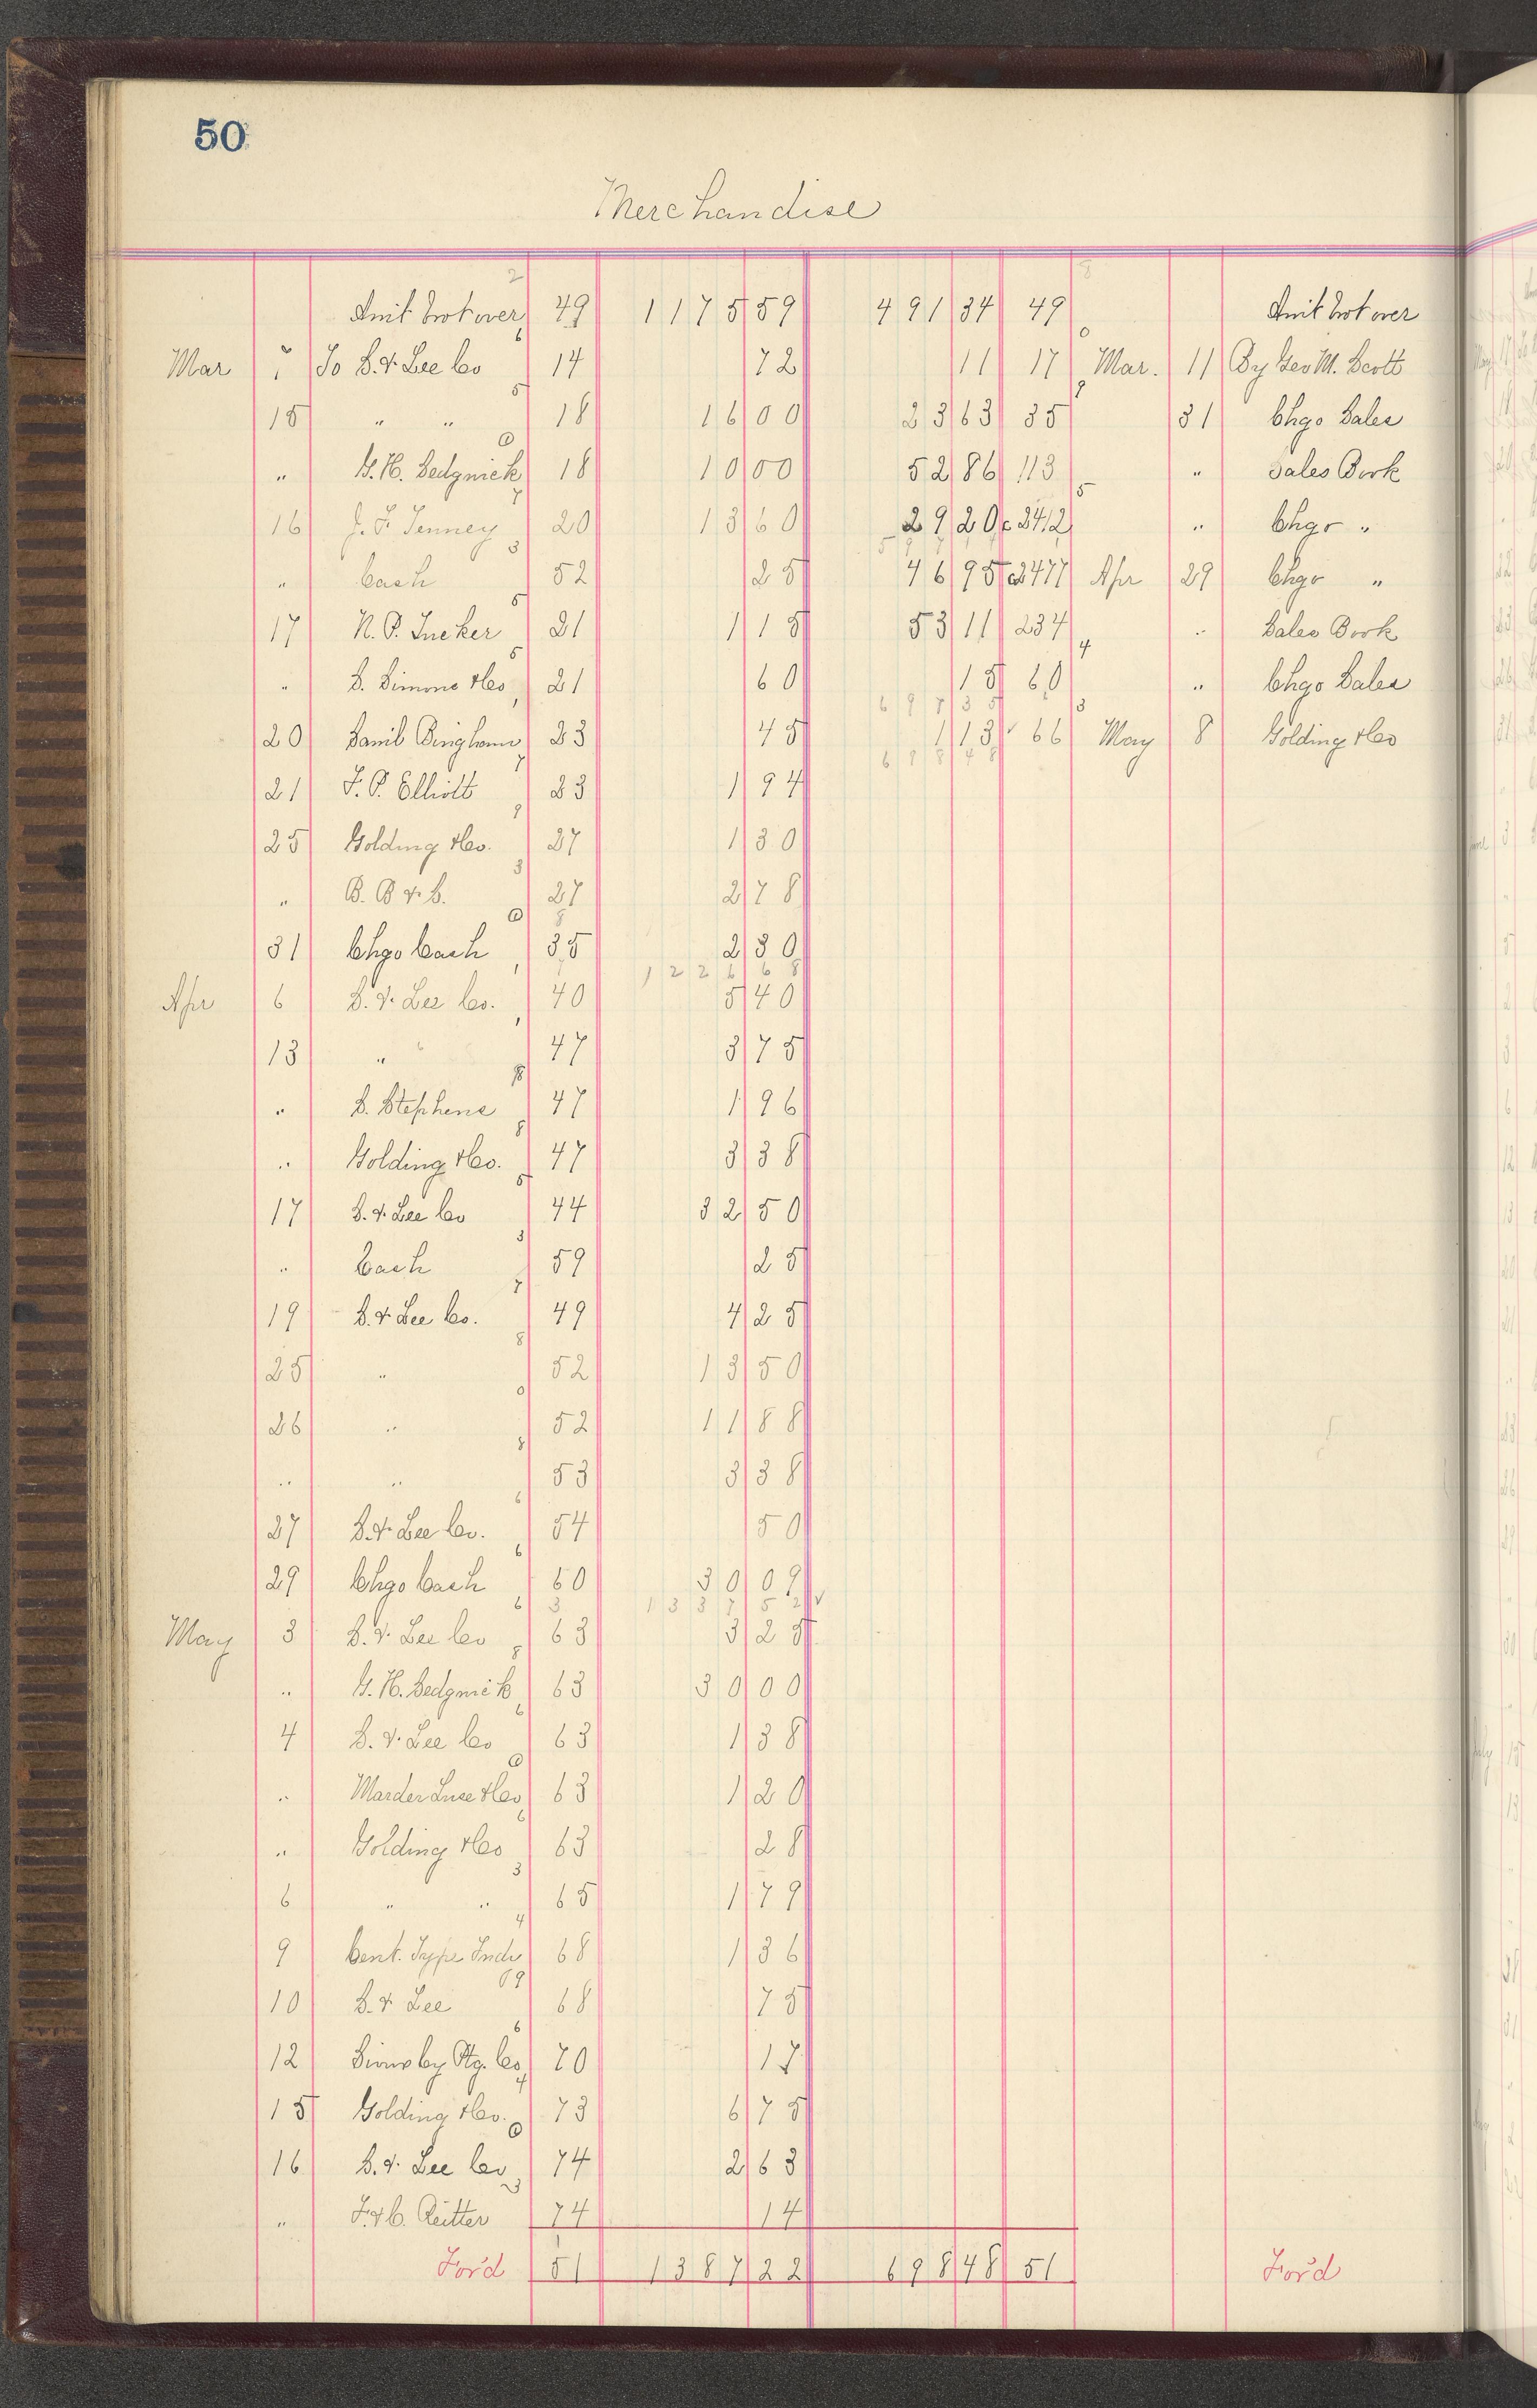 50
Merchandise
Amt brot over 49 1175 59 491 34 49 Amt brot over
Mar 7 To S. & Lee Co 14 72 11 17 Mar. 11 By Geo M. Scott
15 " " 18 16 00 23 63 35 31 Chgo Sales
" G. H. Sedgwick 18 10 00 52 86 113 " Sales Book
16 J. F. Tenney 20 13 60 29 20 c2412 " Chgo "
" Cash 52 25 46 95 c2477 Apr 29 Chgo "
17 N. P. Tucker 21 1 15 53 11 234 " Sales Book
" S. Simons &Co 21 60 15 60 " Chgo Sales
20 Saml Bingham 23 45 1 13 66 May 8 Golding &Co
21 F. P. Elliott 23 1 94
25 Golding &Co. 27 1 30
" B. B & S. 27 2 78
31 Chgo Cash 35 2 30
1226 68
Apr 6 S. & Lee Co. 40 5 40
13 " 47 3 75
" S. Stephens 47 1 96
" Golding &Co. 47 3 38
17 S. & Lee Co 44 32 50
" Cash 59 25
19 S. & Lee Co. 49 4 25
25 " 52 13 50
26 " 52 11 88
" " 53 3 38
27 S. & Lee Co. 54 50
29 Chgo Cash 60 30 09
1337 52
May 3 S. & Lee Co 63 3 25
" G. H. Sedgwick 63 30 00
4 S. & Lee Co 63 1 38
" Marder Luse &Co 63 1 20
" Golding &Co 63 28
6 " " 65 1 79
9 Cent. Type Fndy 68 1 36
10 S. & Lee 68 75
12 Ptg. Co 70 17
15 Golding &Co. 73 6 75
16 S. & Lee Co 74 2 63
" F. & C. Reitter 74 14
For'd 51 1387 22 698 48 51 For'd